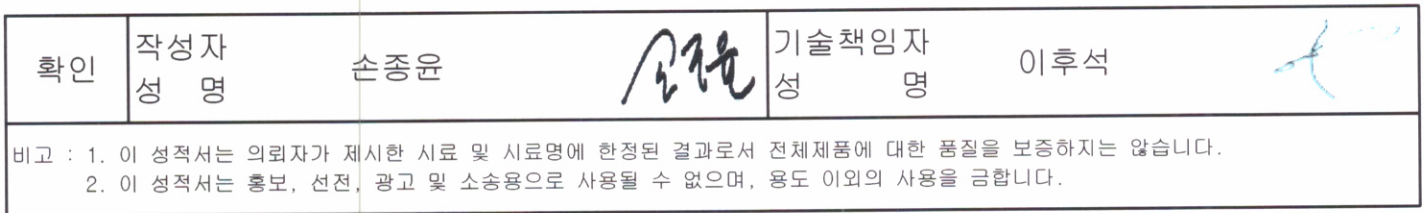 확인
작성자
성 명
손종윤
손종윤
기술책임자
성 명
이후석
비고 : 1. 이 성적서는 의뢰자가 제시한 시료 및 시료명에 한정된 결과로서 전체제품에 대한 품질을 보증하지는 않습니다.
2. 이 성적서는 홍보, 선전, 광고 및 소송용으로 사용될 수 없으며, 용도 이외의 사용을 금합니다.